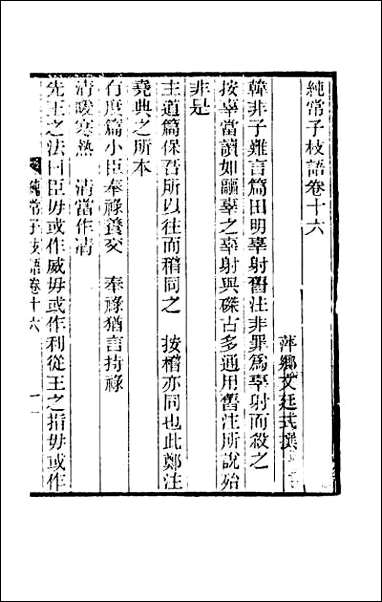 純常子枝語卷十六
萍鄉文廷式撰
韓非子難言篇田明辜射舊注非罪為辜射而殺之
按辜當讀如疈辜之辜射與磔古多通用舊注所說殆
非是
主道篇保吾所以往而稽同之　按稽亦同也此鄭注
堯典之所本
有度篇小臣奉祿養交　奉祿猶言持祿
清暖寒熱　清當作凊
先王之法曰臣毋或作威毋或作利從王之指毋或作
純常子枝語卷十六　一